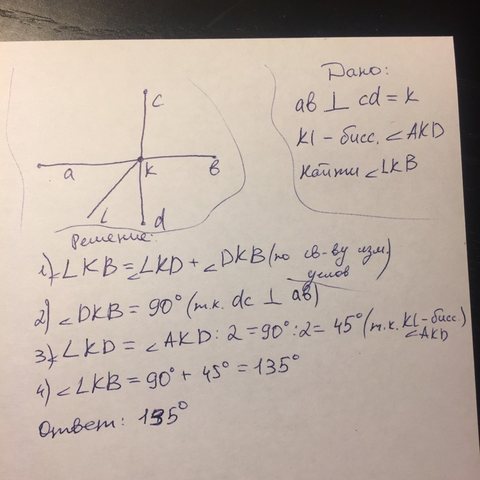 c
a
k
в
L
d
Дано:
ав ⊥ cd = к
Kl - бисс. ∠AKD
Найти ∠LKB
Решение:
1) ∠LKB = ∠LKD + ∠DKB (по св-ву изм.
углов)
2) ∠DKB = 90° (т.к. dc ⊥ ав)
3) ∠LKD = ∠AKD : 2 = 90° : 2 = 45° (т.к. Kl - бисс.)
∠AKD
4) ∠LKB = 90° + 45° = 135°
Ответ: 135°